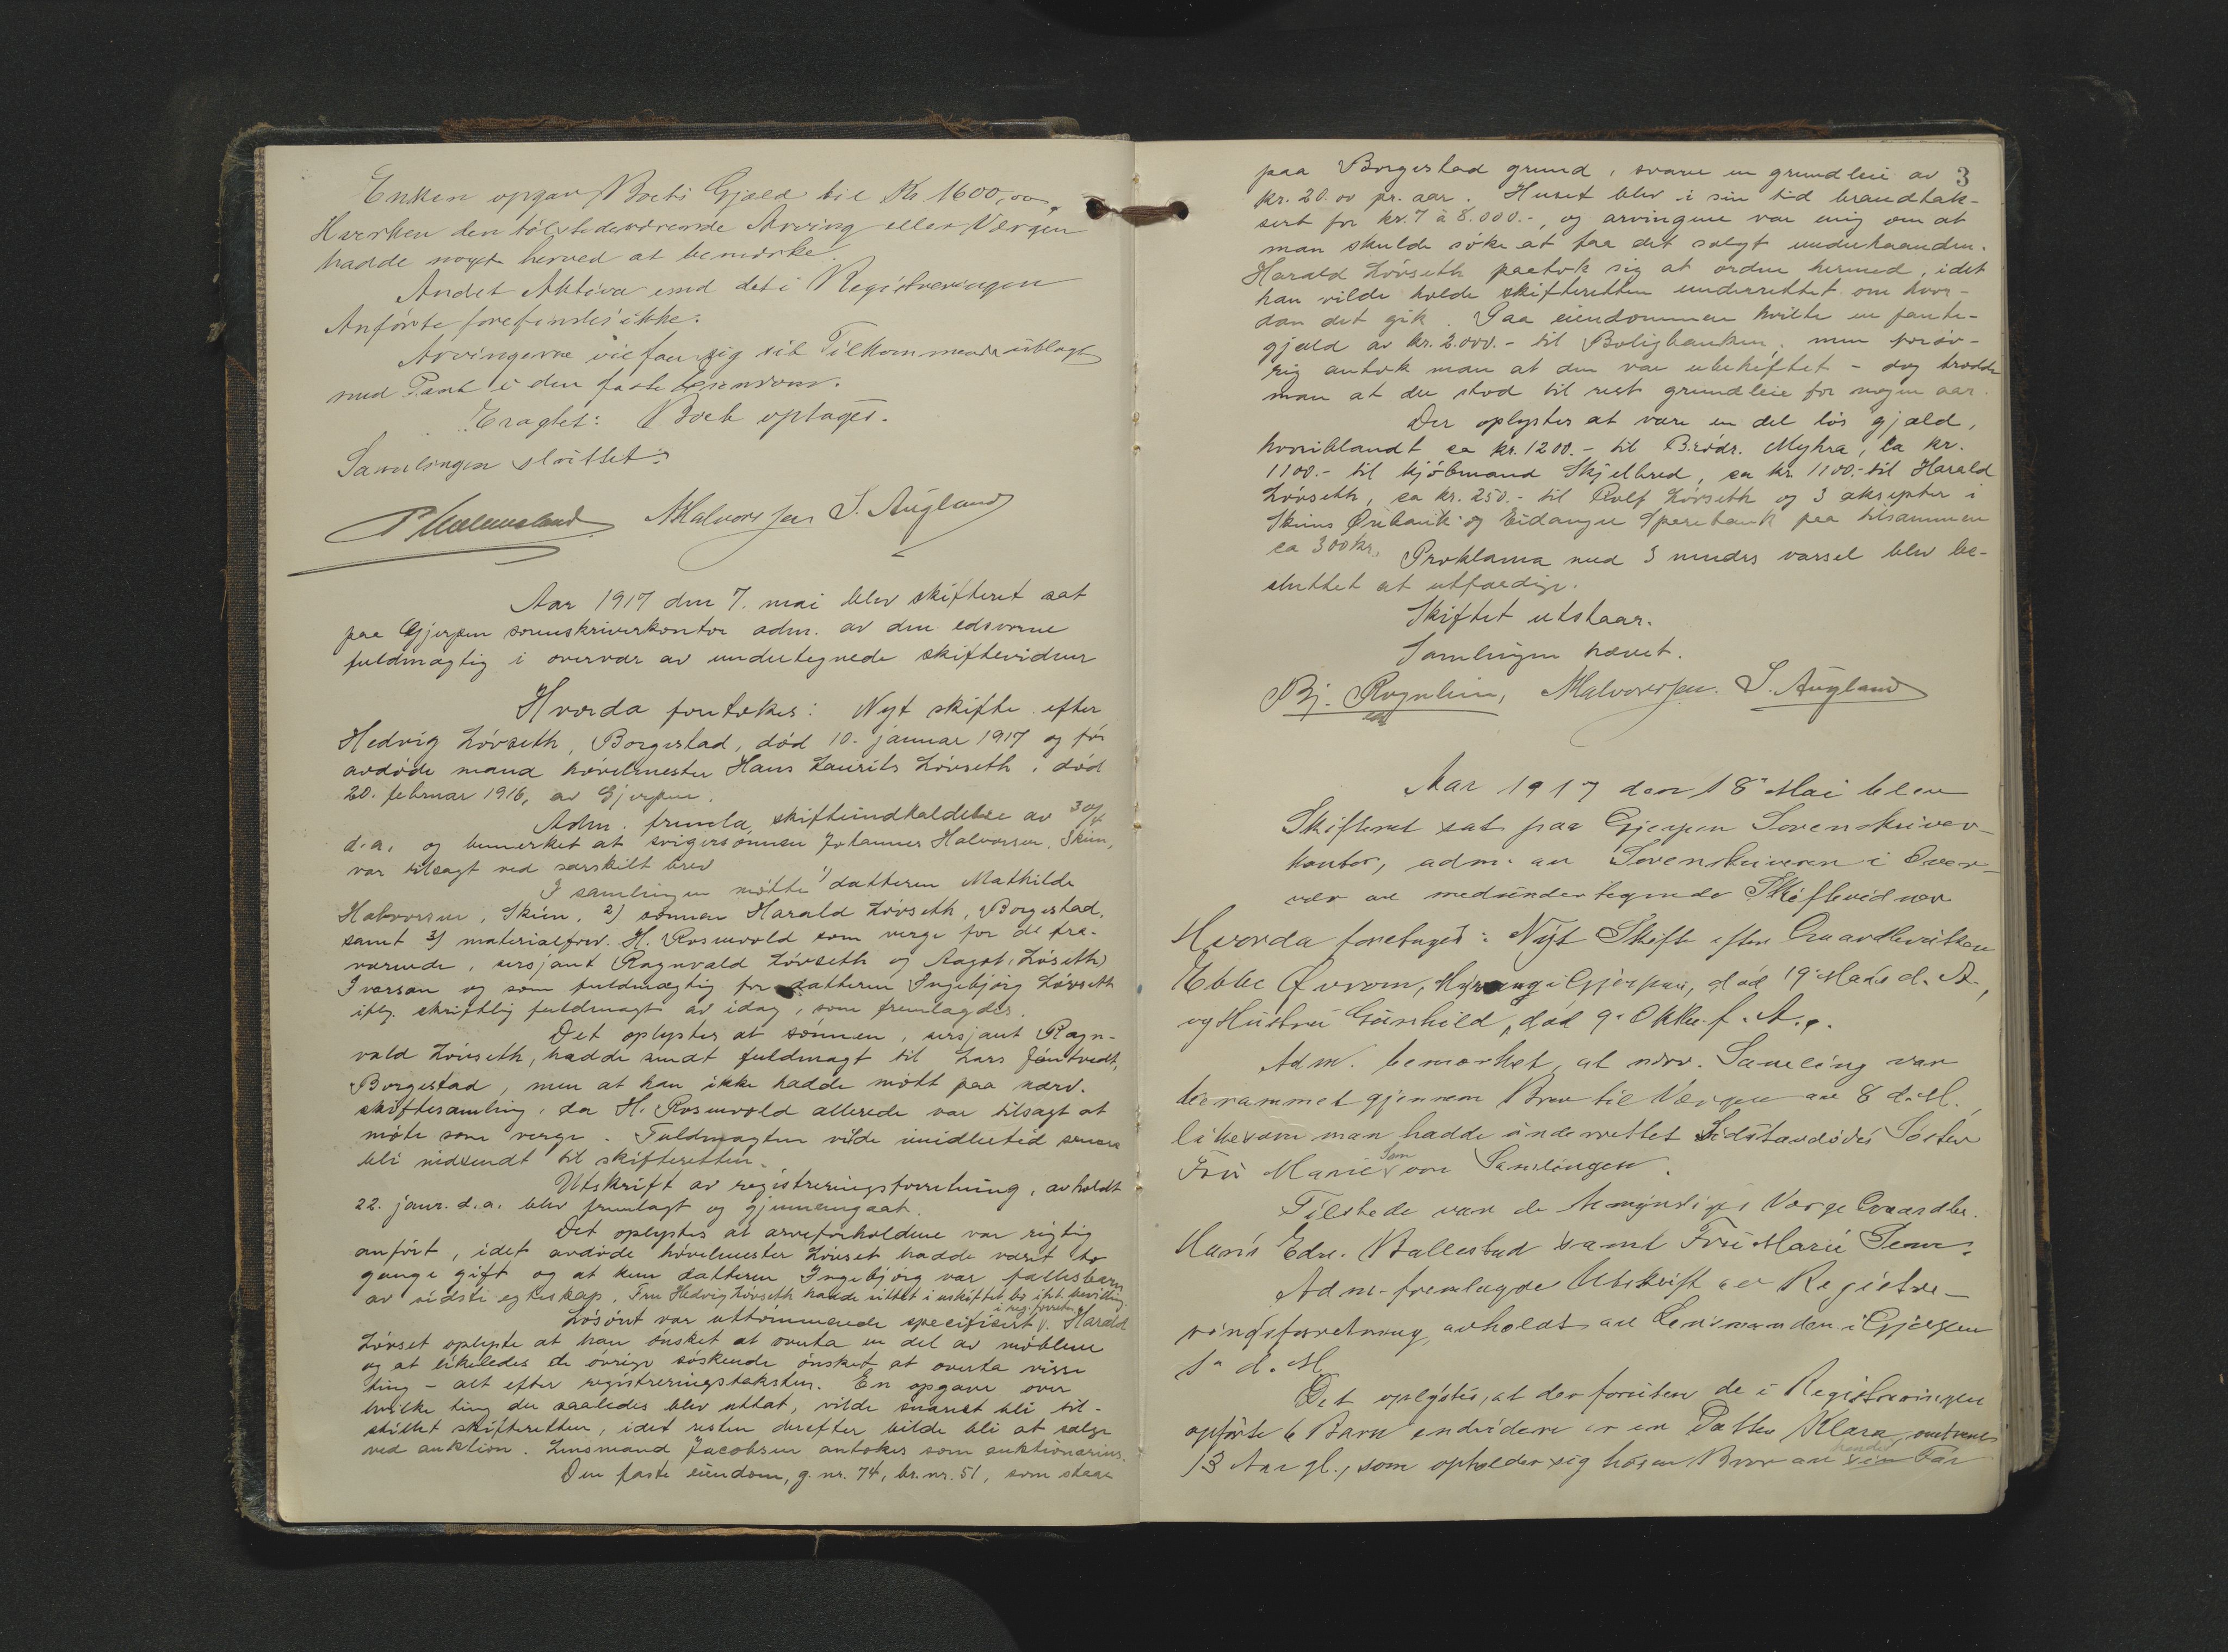 Enken opgav Boets Gjæld til Kr 1600,00.
Hverken den tilstedeværende Arving eller Værgen
hadde noget herved at bemærke.
Andet Aktiva end det i Registreringen
Anførte forefindes ikke.
Arvingerne vil faa sig sit Tilkommende utlagt
med Pant i den faste Eiendom.
Eragtet: Boet optages.
Samlingen sluttet.
NHalvorsen S. Augland
Aar 1917 den 7. mai blev skifteret sat
paa Gjerpen sorenskriverkontor adm. av den edsvorne
fuldmægtig i overvær av undertegnede skiftevidner
Hvorda foretokes: Nyt skifte efter
Hedvig Lövseth, Borgestad, död 10. januar 1917 og för
avdöde mand hövelmester Hans Laurits Lövseth, död
20. februar 1916, av Gjerpen.
Adm. fremla skifteindkaldelse av 30/4
d.a. og bemerket at svigersönnen Johannes Halvorsen, Skien,
var tilsagt ved særskilt brev
I samlingen mötte 1) datteren Mathilde
Halvorsen, Skien, 2) sönnen Harald Lövseth, Borgestad,
samt 3) materialforv. H. Rosenvold som verge for de fra-
værende, sersjant Ragnvald Lövseth og Aagot (Löseth)
Ivarson og som fuldmægtig for datteren Ingebjörg Lövseth
iflg. skriftlig fuldmagt av idag, som fremlagdes.
Det oplystes at sönnen, sersjant Ragn-
vald Lövseth, hadde sendt fuldmagt til Lars Jöntvedt,
Borgestad, men at han ikke hadde mött paa nærv.
skiftesamling, da H. Rosenvold allerede var tilsagt at
möte som verge. Fuldmagten vilde imidlertid senere
bli nedsendt til skifteretten.
Utskrift av registreringsforretning, avholdt
22. janr. d.a. blev fremlagt og gjennemgaat.
Det oplystes at arveforholdene var rigtig
anfört, idet avdöde hövelmester Lövset hadde været to
gange gift og at kun datteren Ingebjörg var fællesbarn
av sidste egteskap. Fru Hedvig Lövseth hadde sittet i uskiftet bo ifl. bevilling.
Lösöret var uttömmende specificert i reg.forretn. Harald
Lövset oplyste at han önsket at overta en del av möblene
og at likeledes de övrige söskende önsket at overta visse
ting - alt efter registreringstaksten. En opgave over
hvilke ting der saaledes blev uttat, vilde snarest bli til-
stillet skifteretten, idet resten derefter vilde bli at sælge
ved auktion. Lensmand Jacobsen antokes som auktionarius.
Den faste eiendom, g.nr. 74, br.nr. 51, som staar
3
paa Borgestad grund, svarer en grundleie av
kr. 20.00 pr. aar. Huset blev i sin tid brandtak-
sert for kr. 7 à 8.000.-, og arvingene var enig om at
man skulde söke at faa det solgt underhaanden.
Harald Lövseth paatok sig at ordne hermed, idet
han vilde holde skifteretten underrettet om hvor-
dan det gik. Paa eiendommen hvilte en pante-
gjæld av kr. 2.000.- til Boligbanken, men forøv-
rig antok man at den var ubeheftet - dog trodde
man at der stod til rest grundleie for nogen aar.
Der oplystes at være en del lös gjæld,
hvoriblandt ca kr. 1200.- til Brödr. Myhra, ca kr.
1100.- til kjöbmand Skjelbred, ca kr. 1100.- til Harald
Lövseth, ca kr. 250.- til Rolf Lövseth og 3 aksepter i
Skiens Örebank og Eidanger Sparebank paa tilsammen
ca 300 kr.
Proklama med 3 mndrs varsel blev be-
sluttet at utfærdige.
Skiftet utstaar.
Samlingen hævet.
Bj. Rognlien, NHalvorsen. S. Augland
Aar 1917 den 18 Mai blev
Skifteret sat paa Gjerpen Sorenskriver-
kontor, adm. av Sorenskriveren i Over-
vær av medundertegnede Skiftevidner
Hvorda foretoges: Nyt Skifte efter Gaardbruker
Ebbe Øverom, Myrang i Gjerpen, død 19 Mars d. A.,
og Hustru Gunhild, død 9. Oktbr. f. A.
Adm. bemærket, at nærv. Samling var
berammet gjennem Brev til Værgen av 8 d. M.
likesom man hadde underrettet Sidstavdødes Søster
Fru Marie Sem om Samlingen.
Tilstede var de Umyndiges Værge Gaardbr.
Hans Edv. Ballestad samt Fru Marie Sem.
Adm. fremlagde Utskrift av Registre-
ringsforretning, avholdt av Lensmanden i Gjerpen
1. d. M.
Det oplystes, at der foruten de i Registreringen
opførte 6 Barn endvidere er en Datter Klara, omtrent
13 Aar gl., som opholder sig hos en Bror av sin hendes Far